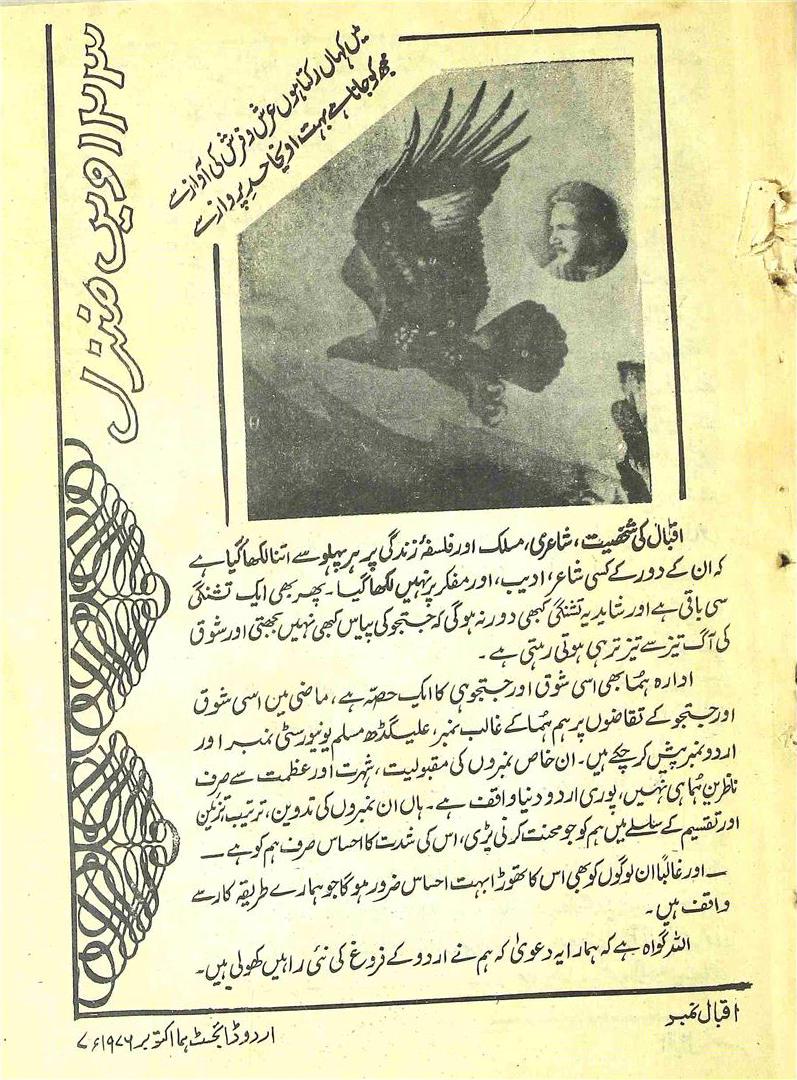 ۱۲۳ ویں منزل
میں کہاں رکتا ہوں عرش و فرش کی آواز سے
مجھ کو جانا ہے بہت اونچا حدِ پرواز سے
اقبال کی شخصیت، شاعری، مسلک اور فلسفۂ زندگی پر ہر پہلو سے اتنا لکھا گیا ہے
کہ ان کے دور کے کسی شاعر، ادیب، اور مفکر پر نہیں لکھا گیا۔ پھر بھی ایک تشنگی
سی باقی ہے اور شاید یہ تشنگی کبھی دور نہ ہوگی کہ جستجو کی پیاس کبھی نہیں بجھتی اور شوق
کی آگ تیز سے تیز تر ہی ہوتی رہتی ہے۔
ادارہ ہُما بھی اسی شوق اور جستجو ہی کا ایک حصہ ہے، ماضی میں اسی شوق
اور جستجو کے تقاضوں پر ہم ہُما کے غالب نمبر، علیگڈھ مسلم یونیورسٹی نمبر اور
اردو نمبر پیش کر چکے ہیں۔ ان خاص نمبروں کی مقبولیت، شہرت اور عظمت سے صرف
ناظرین ہُما ہی نہیں، پوری اردو دنیا واقف ہے۔ ہاں ان نمبروں کی تدوین، ترتیب، تزئین
اور تقسیم کے سلسلے میں ہم کو جو محنت کرنی پڑی، اس کی شدت کا احساس صرف ہم کو ہے —
— اور غالباً ان لوگوں کو بھی اس کا تھوڑا بہت احساس ضرور ہوگا جو ہمارے طریقہ کار سے
واقف ہیں۔
اللہ گواہ ہے کہ ہمارا یہ دعویٰ کہ ہم نے اردو کے فروغ کی نئی راہیں کھولی ہیں۔
اقبال نمبر
اردو ڈائجسٹ ہما اکتوبر ۱۹۷۶ء ۷